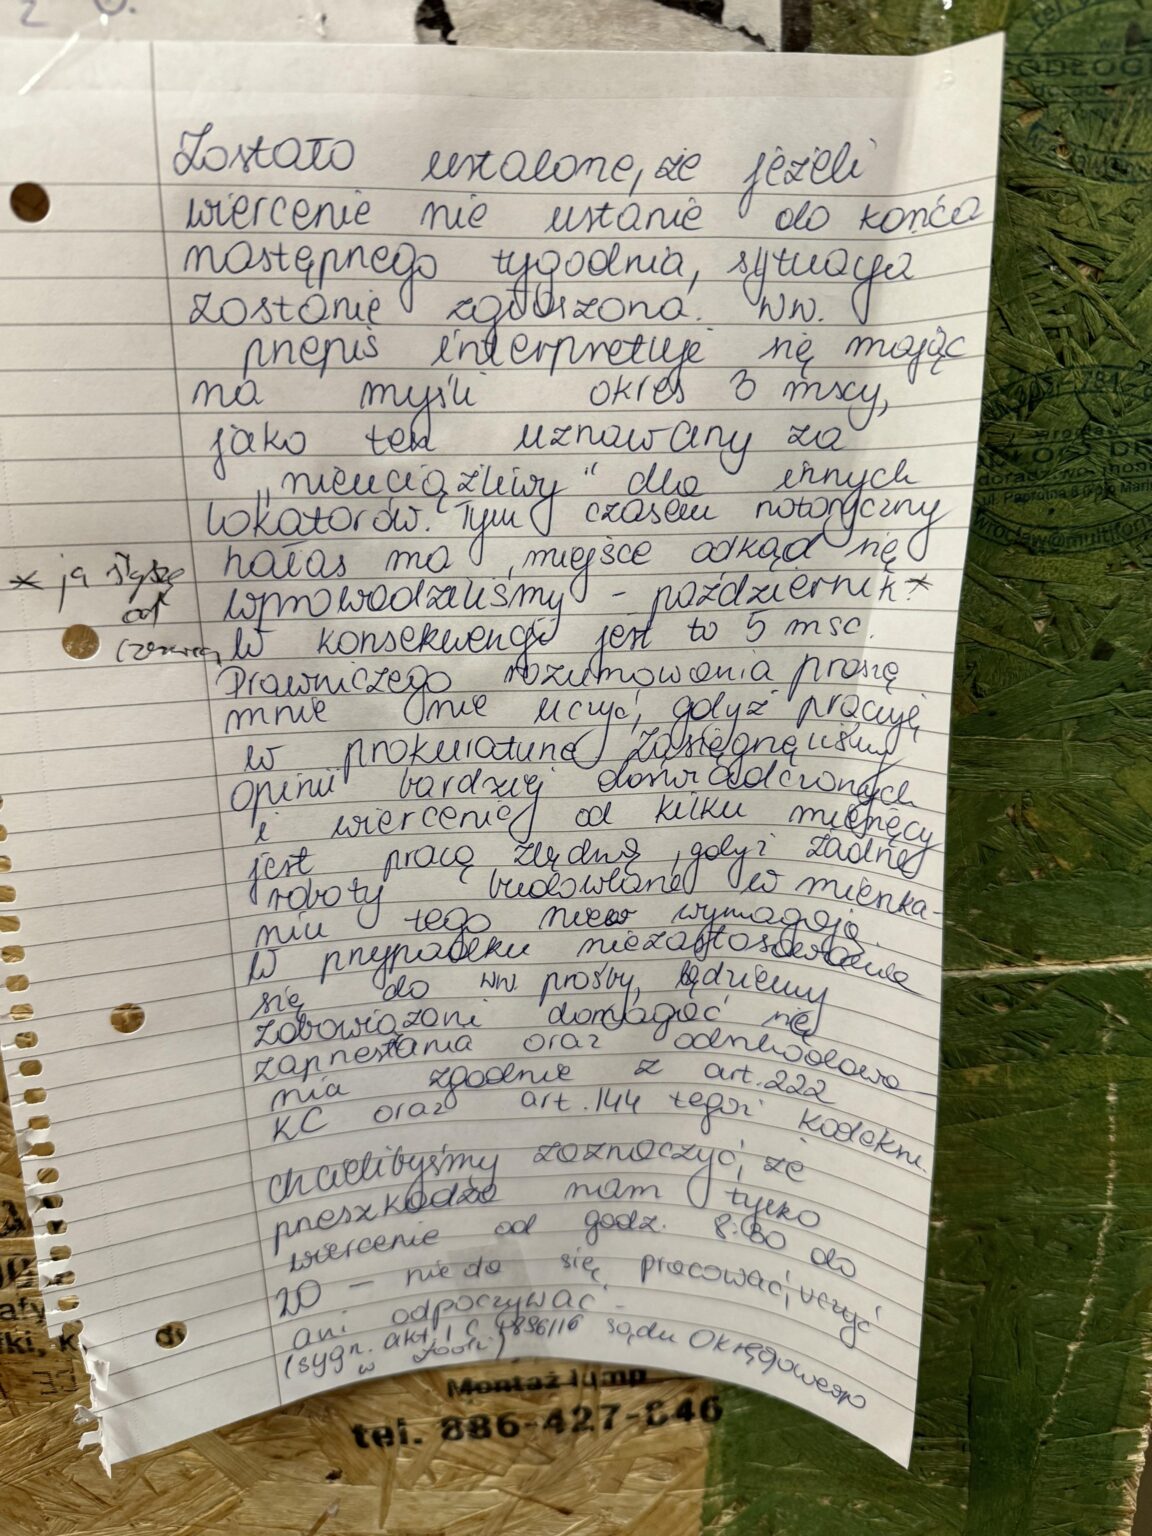 Zostało ustalone, że jeżeli
wiercenie nie ustanie do końca
następnego tygodnia, sytuacja
zostanie zgłoszona. WW.
przepis interpretuje się mając
na myśli okres 3 mscy,
jako ten uznawany za
„nieuciążliwy" dla innych
lokatorów. Tym czasem notoryczny
hałas ma miejsce odkąd się
wprowadziliśmy - październik.*
* ja słyszę
od
czerwca
W konsekwencji jest to 5 msc.
Prawniczego rozumowania proszę
mnie nie uczyć, gdyż pracuję
w prokuraturze. Zasięgnęliśmy
opinii bardziej doświadczonych
i wiercenie od kilku miesięcy
jest pracą zbędną, gdyż żadne
roboty budowlane w mieszka-
niu tego nie wymagają.
W przypadku niezastosowania
się do ww prośby, będziemy
zobowiązani domagać się
zaprzestania oraz odszkodowa-
nia zgodnie z art. 222
KC oraz art. 144 tegoż kodeksu.
Chcielibyśmy zaznaczyć, że
przeszkadza nam tylko
wiercenie od godz. 8:30 do
20 – nie da się pracować, uczyć
ani odpoczywać.
(sygn. akt I C 1896/16 sądu Okręgowego
w Łodzi)
Montaż lamp
tel. 886-427-646
PODŁOGI
ul. Paprotna 8